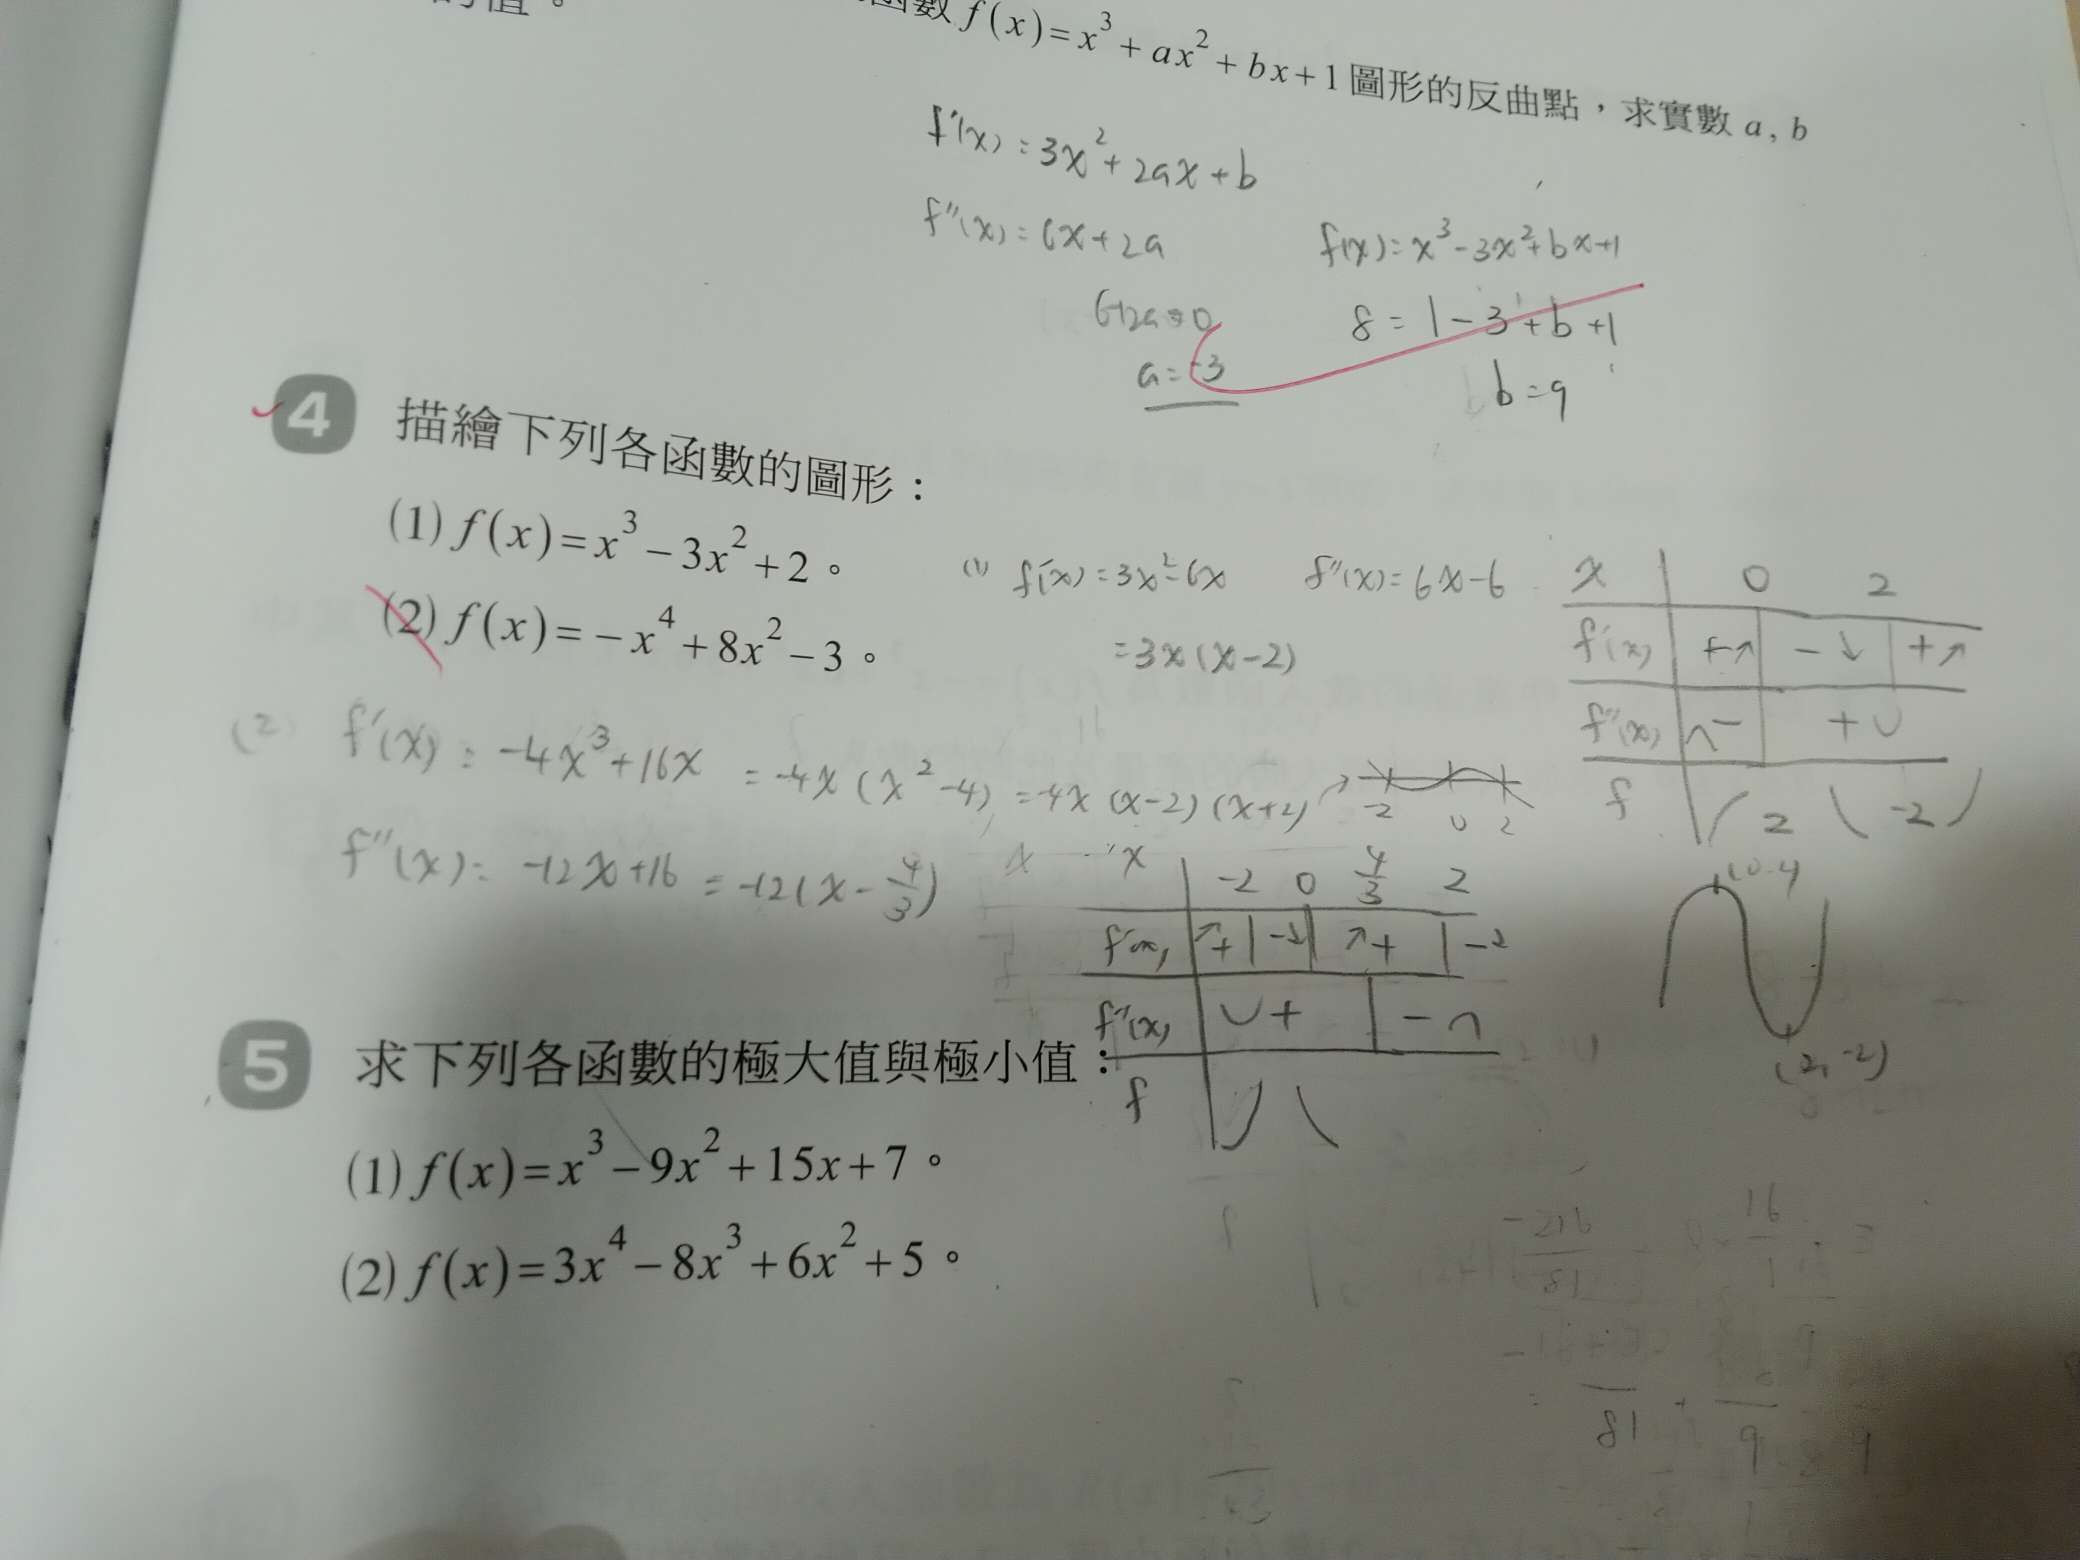 函數 f(x)=x³+ax²+bx+1 圖形的反曲點,求實數 a, b
f'(x)=3x²+2ax+b
f''(x)=6x+2a
6+2a=0
a=-3
f(x)=x³-3x²+bx+1
8=1-3+b+1
b=9
4 描繪下列各函數的圖形:
(1) f(x)=x³-3x²+2。
(2) f(x)=-x⁴+8x²-3。
(1) f'(x)=3x²-6x f''(x)=6x-6
=3x(x-2)
x 0 2
f'(x) +↗ -↘ +↗
f''(x) ∩- +∪
f 2 -2
(2,-2)
(2) f'(x)=-4x³+16x =-4x(x²-4)=-4x(x-2)(x+2)
-2 0 2
f''(x)=-12x+16 =-12(x-4/3)
x -2 0 4/3 2
f'(x) ↗+ -↘ ↗+ -
f''(x) ∪+ -∩
f
5 求下列各函數的極大值與極小值:
(1) f(x)=x³-9x²+15x+7。
(2) f(x)=3x⁴-8x³+6x²+5。